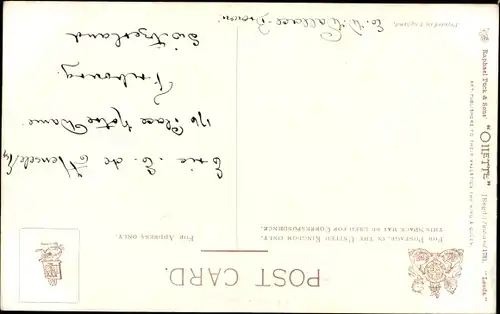 POST CARD.
FOR POSTAGE IN THE UNITED KINGDOM ONLY,
THIS SPACE MAY BE USED FOR CORRESPONDENCE.
FOR ADDRESS ONLY.
Eric. E. de
176 Place Notre Dame
Fribourg.
Switzerland
E. W. Wallace-
Raphael Tuck & Sons' "OILETTE" [Regd.] Postcard "Leeds."
ART PUBLISHERS TO THEIR MAJESTIES THE KING & QUEEN.
Printed in England.